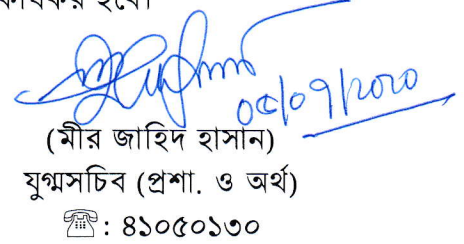 কার্যকর হবে।
০৫/০৭/২০২০
(মীর জাহিদ হাসান)
যুগ্মসচিব (প্রশা. ও অর্থ)
☎ : ৪১০৫০১৩০